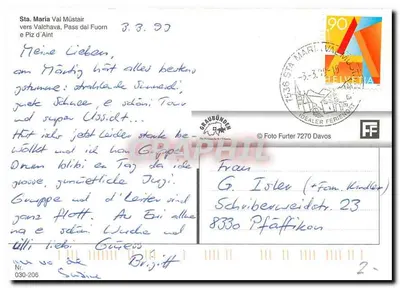 Sta. Maria Val Müstair
vers Valchava, Pass dal Fuorn
e Piz d'Aint
3.3.99
Meine Lieben,
am Mäntig hät alles bestens
gstumme: strahlende Sunneschi,
guete Schnee, e schöni Tour
und super Ussicht...
Hüt isch jetzt leider starch be-
wölkt und ich han Grippe.
Drum blibi en Tag da ide
grosse, gmüetliche Jugi.
Gruppe und d'Leiter sind
ganz flott. Au Eui allne
na e schöni Wuche und
villi liebi Grüess
Brigitt
Nr.
030-206
90
HELVETIA
7536 STA. MARIA VAL MÜSTAIR
-3.3.99
IDEALER FERIENORT
GRAUBÜNDEN
© Foto Furter 7270 Davos
FF
Frau
G. Isler (+ Fam. Kindler)
Schreiberweidstr. 23
8330 Pfäffikon
2.-